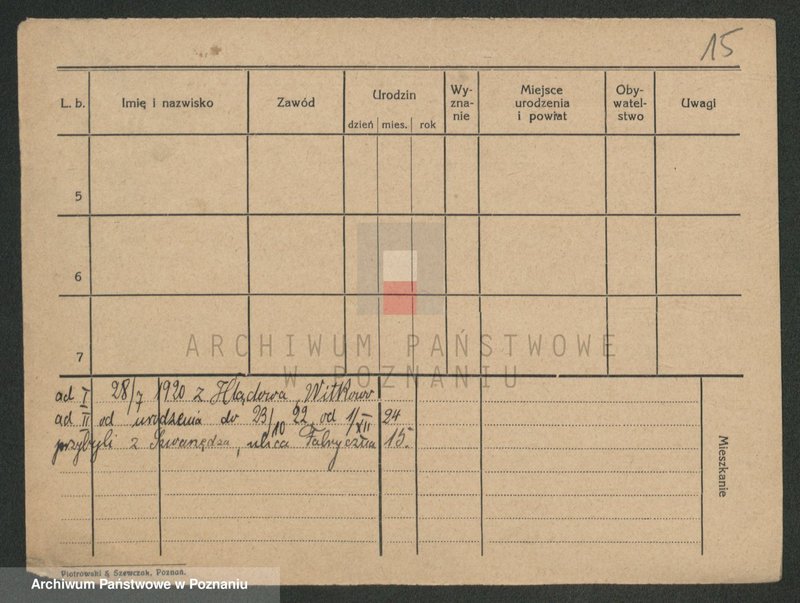 15
L. b. Imię i nazwisko Zawód Urodzin dzień mies. rok Wy-zna-nie Miejsce urodzenia i powiat Oby-watel-stwo Uwagi
5
6
7
ARCHIWUM PAŃSTWOWE
W POZNANIU
ad I 28/7 1920 z Hłądowa, Witkowo
ad II od urodzenia do 23/10 22, od 1/XII 24
przybyli z Szwarzędza, ulica Fabryczna 15.
Mieszkanie
Piotrowski & Szewczak, Poznań.
Archiwum Państwowe w Poznaniu